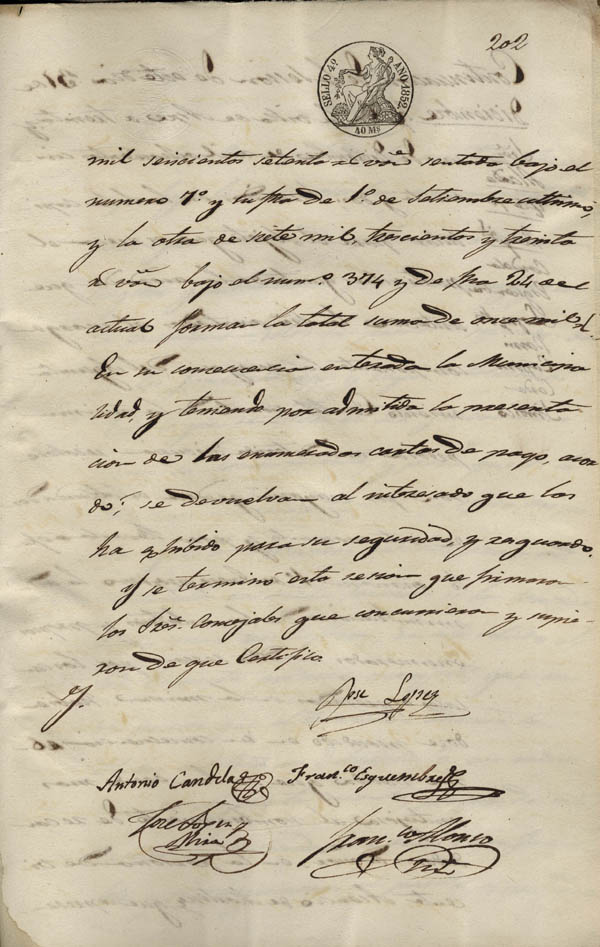 202
SELLO 4º AÑO 1852.
40 Ms
mil seiscientos setenta rs von sentada bajo el
numero 7º y su fha de 1º de Setiembre ultimo,
y la otra de siete mil, trescientos y treinta
rs von bajo el num.º 374 y de fha 24 del
actual forman la total suma de once mil rs.
En su consecuencia enterada la Municipa
lidad, y teniendo por admitida la presenta
cion de las enumeradas cartas de pago, acor
dó; se devuelvan al interesado que las
ha exhibido para su seguridad, y resguardo.
Y se termino esta sesion que firmaron
los Sres. Concejales que concurrieron y supie-
ron de que Certifico
Jose Lopez
Antonio Candela Fran.co Esquembre
Jose Lopez
Fran.co Alonso